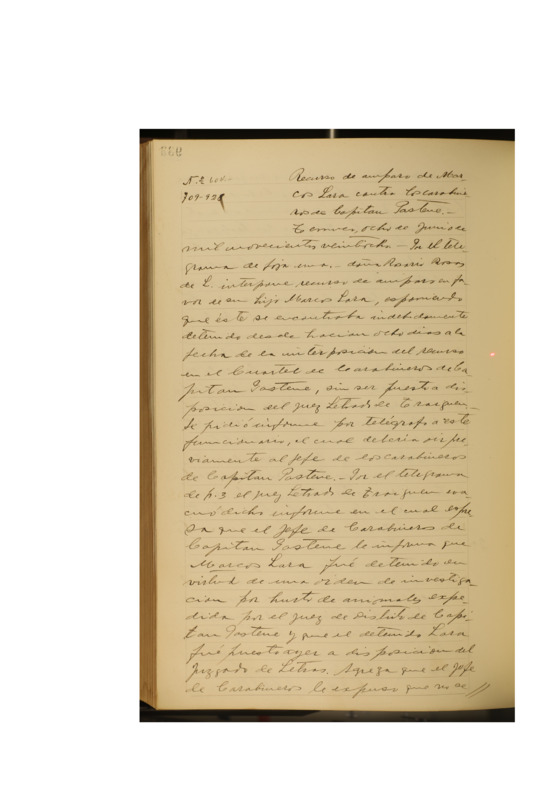 Recurso de amparo de Mar-
cos Lara contra los carabine
ros de Capitan Pastene.-
709-928
Temuco, ocho de Junio de
mil novecientos veintiocho.- Por el tele-
grama de foja una. doña Rosario Rosas
de L. interpone recurso de amparo en fa-
vor de su hijo Marcos Lara, exponiendo
que éste se encontraba indebidamente
detenido desde hacian ocho dias a la
fecha de la interposicion del recurso
en el Cuartel de Carabineros de Ca
pitan Pastene, sin ser puesto a dis-
posicion del Juez Letrado de Traiguen.-
Se pidió informe por telégrafo a este
funcionario, el cual deberia oir pre
viamente al Jefe de los carabineros
de Capitan Pastene.- Por el telegrama
de p. 3 el Juez Letrado de Traiguen eva
cuó dicho informe en el cual expre
sa que el Jefe de Carabineros de
Capitan Pastene le informa que
Marcos Lara fué detenido en
virtud de una orden de investiga
cion por hurto de animales expe
dida por el juez de Distrito de Capi-
tan Pastene y que el detenido Lara
fué puesto ayer a disposicion del
Juzgado de Letras. Agrega que el Jefe
de Carabineros le expuso que no se